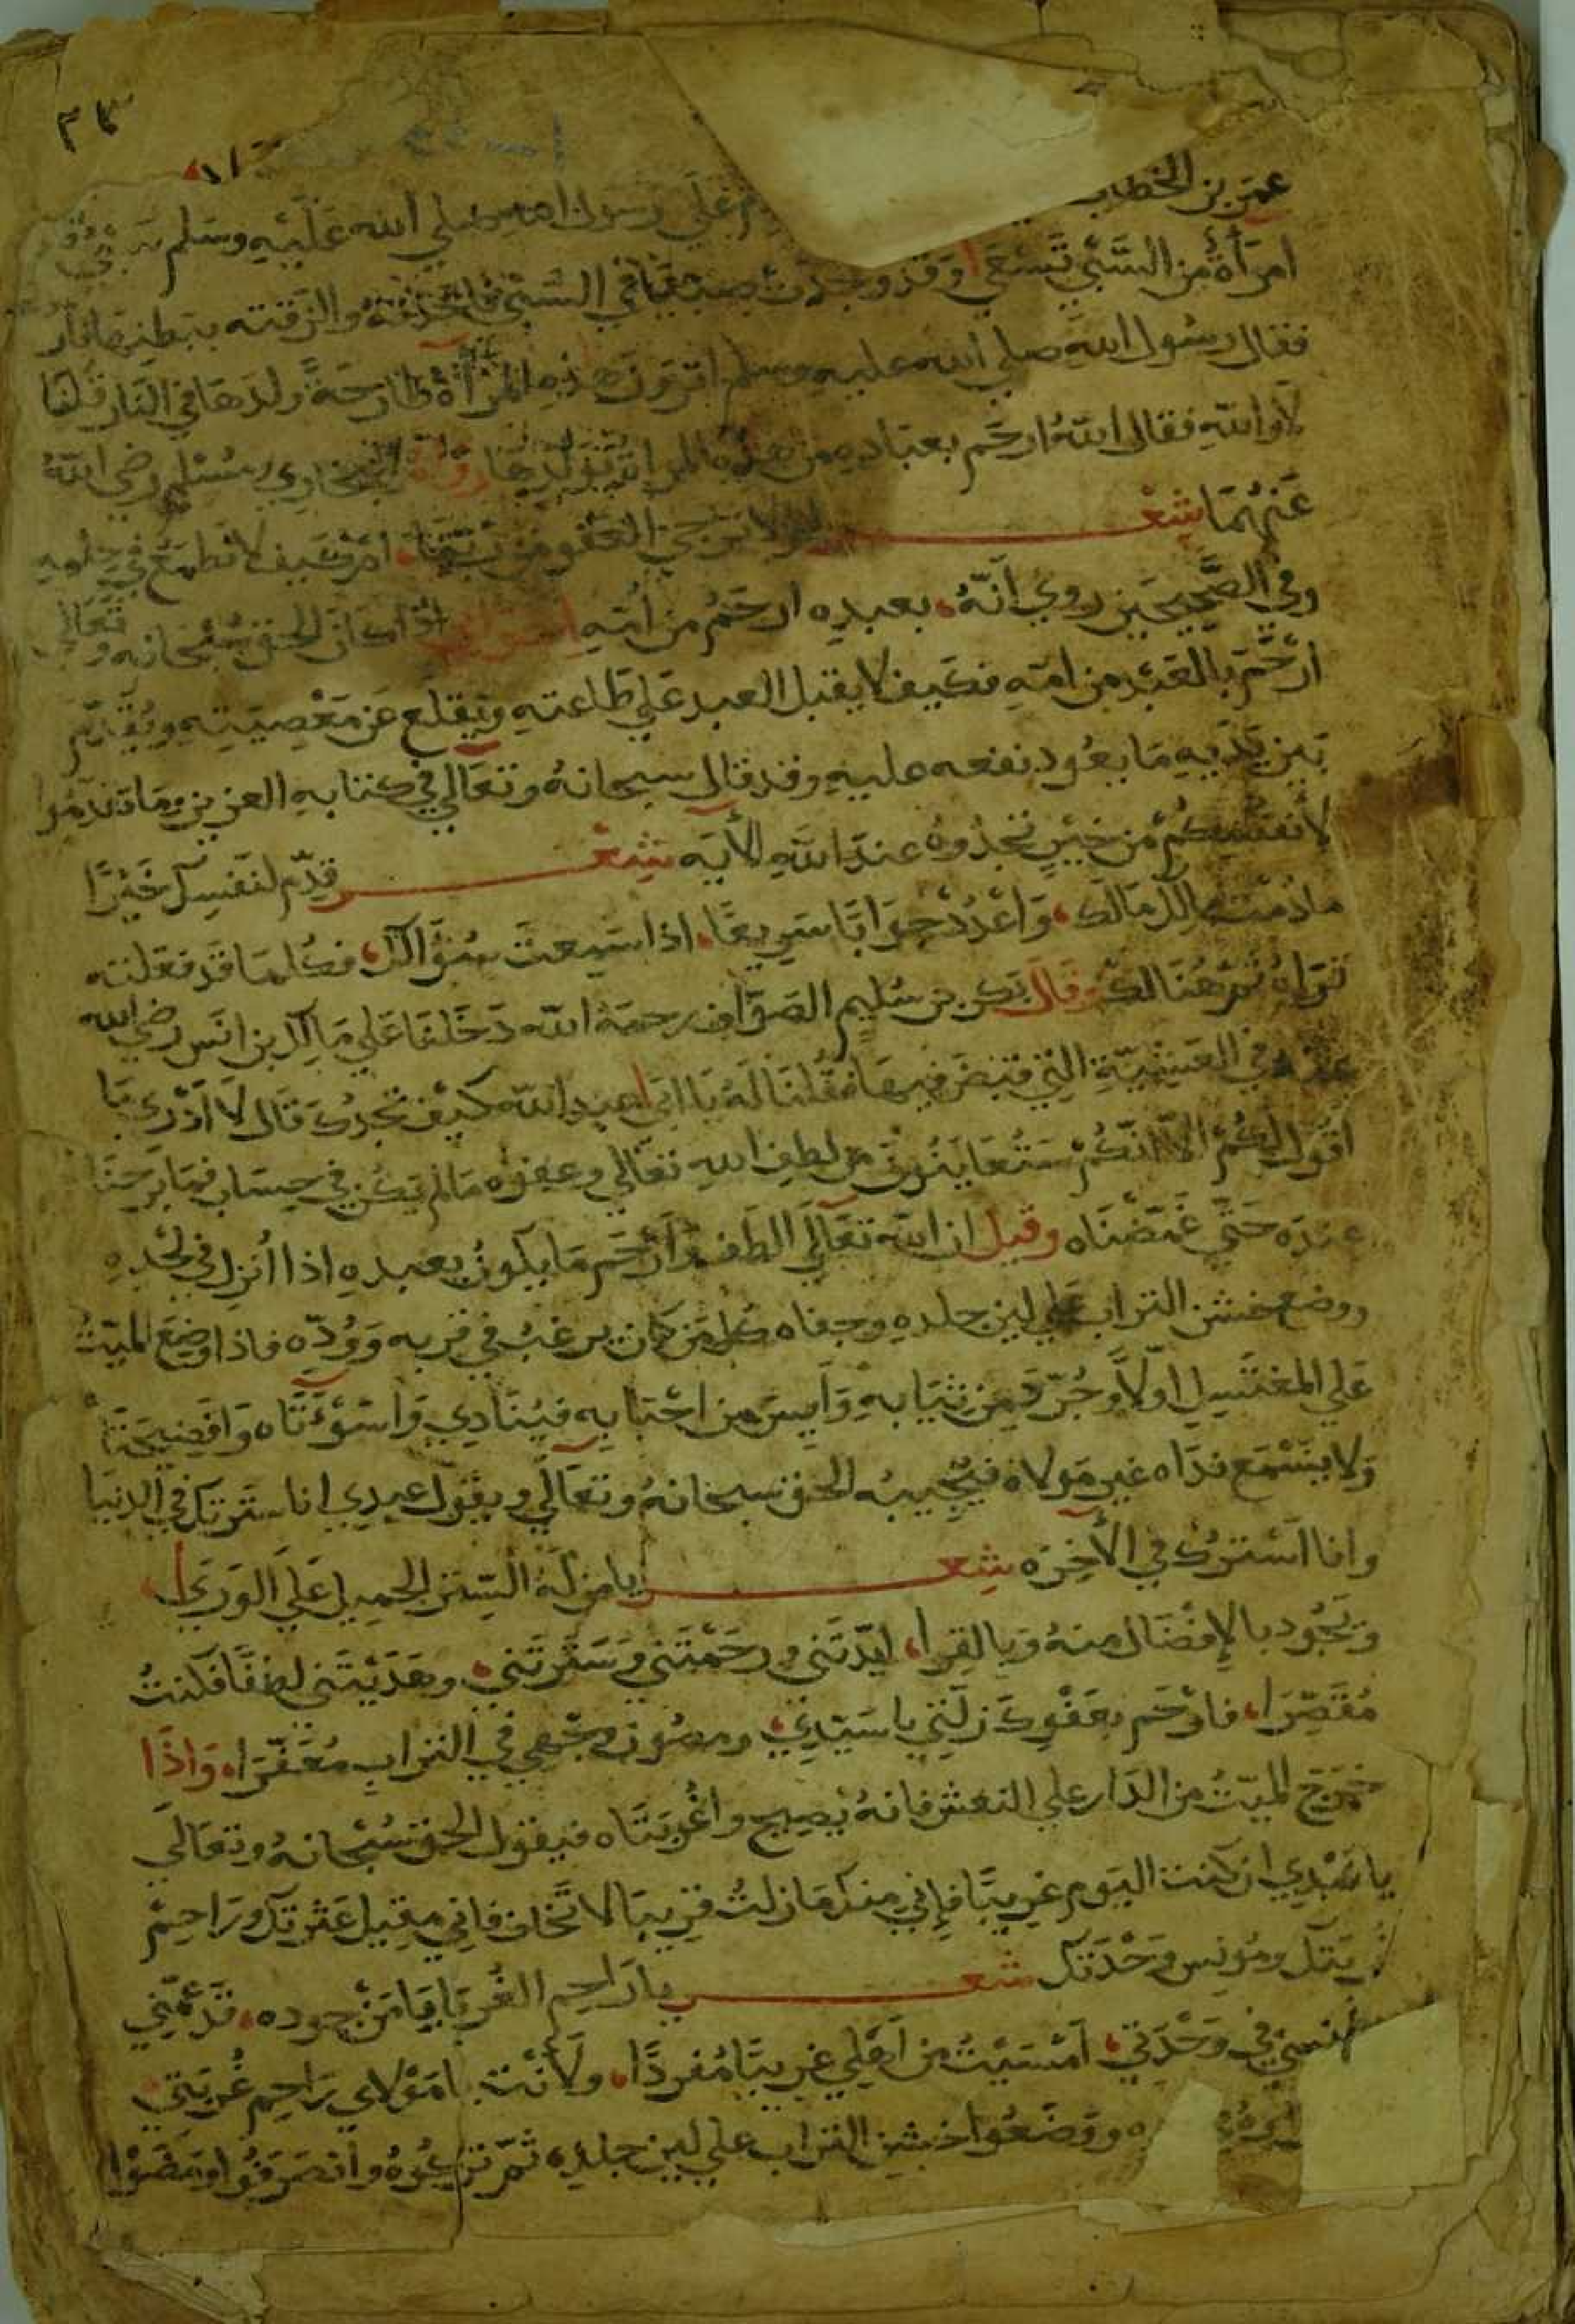 عمر بن الخطاب قدم على رسول الله صلي الله عليه وسلم
امرأة من السبي تسعي اذ وجدت صبيا في السبي فاخذته والزقته ببطنها فار
فقال رسول الله صلي الله عليه وسلم اترون هذه المرأة طارحة ولدها في النار قلنا
لا والله فقال الله ارحم بعباده من هذه المراة بولدها رواه البخاري ومسلم رضي الله
عنهما شعر لم لا نرجي العفو من ربنا، ام كيف لا نطمع في حلمه
وفي الصحيحين روي أنه، بعبده ارحم من أمه اذا كان الحق سبحانه وتعالي
ارحم بالعبد من امه فكيف لا يقبل العبد علي طاعته ويقلع عن معصيته ويقدم
بين يديه ما يعود نفعه عليه وقد قال سبحانه وتعالي في كتابه العزيز وما تقدموا
لأنفسكم من خير تجدوه عند الله الأيه شعر قدم لنفسك خيرا
ما دمت مالك مالك، واعدد جوابا سريعا، اذا سمعت سؤالك، فكلما قد فعلته
تراه ثم هنالك وقال بكر بن سليم الصواف رحمة الله دخلنا علي مالك بن انس رضي الله
عنه في العشية التي قبض فيها فقلنا له يا ابا عبد الله كيف تجدك قال لا ادري ما
اقول لكم الا انكم ستعاينون من لطف الله تعالي وعفوه ما لم يكن في حساب فما برحنا
عنده حتي غمضناه وقيل ان الله تعالي الطف وارحم ما يكون بعبده اذا انزل في لحده
ووضع خشن التراب علي لين جلده وجفاه كل من كان يرغب في قربه ووده فاذا وضع الميت
علي المغتسل اولا وجرد من ثيابه وايس من احبابه فينادي واسوءتاه وافضيحتا
ولا يسمع نداه غير مولاه فيجيبه الحق سبحانه وتعالي ويقول عبدي انا سترتك في الدنيا
وانا استرك في الأخره شعر يا من له الستر الجميل علي الوري،
ويجود بالإفضال منه وبالقرا، ايدتني ورحمتني وسترتني، وهديتني لطفا فكنت
مقصرا، فارحم بعفوك زلتي يا سيدي، وصون وجهي في التراب معفرا، واذا
خرج الميت من الدار علي النعش فانه يصيح واغربتاه فيقول الحق سبحانه وتعالي
يا عبدي ان كنت اليوم غريبا فإني منك ما زلت قريبا لا تخاف فاني مقيل عثرتك وراحم
غربتك ومونس وحدتك شعر يا راحم الغربا يا من جوده، قد عمني
في وحدتي، امسيت من اهلي غريبا مفردا، ولأنت يا مولاي راحم غربتي
ووضعوا خشن التراب علي لين جلده ثم تركوه وانصرفوا ومضوا